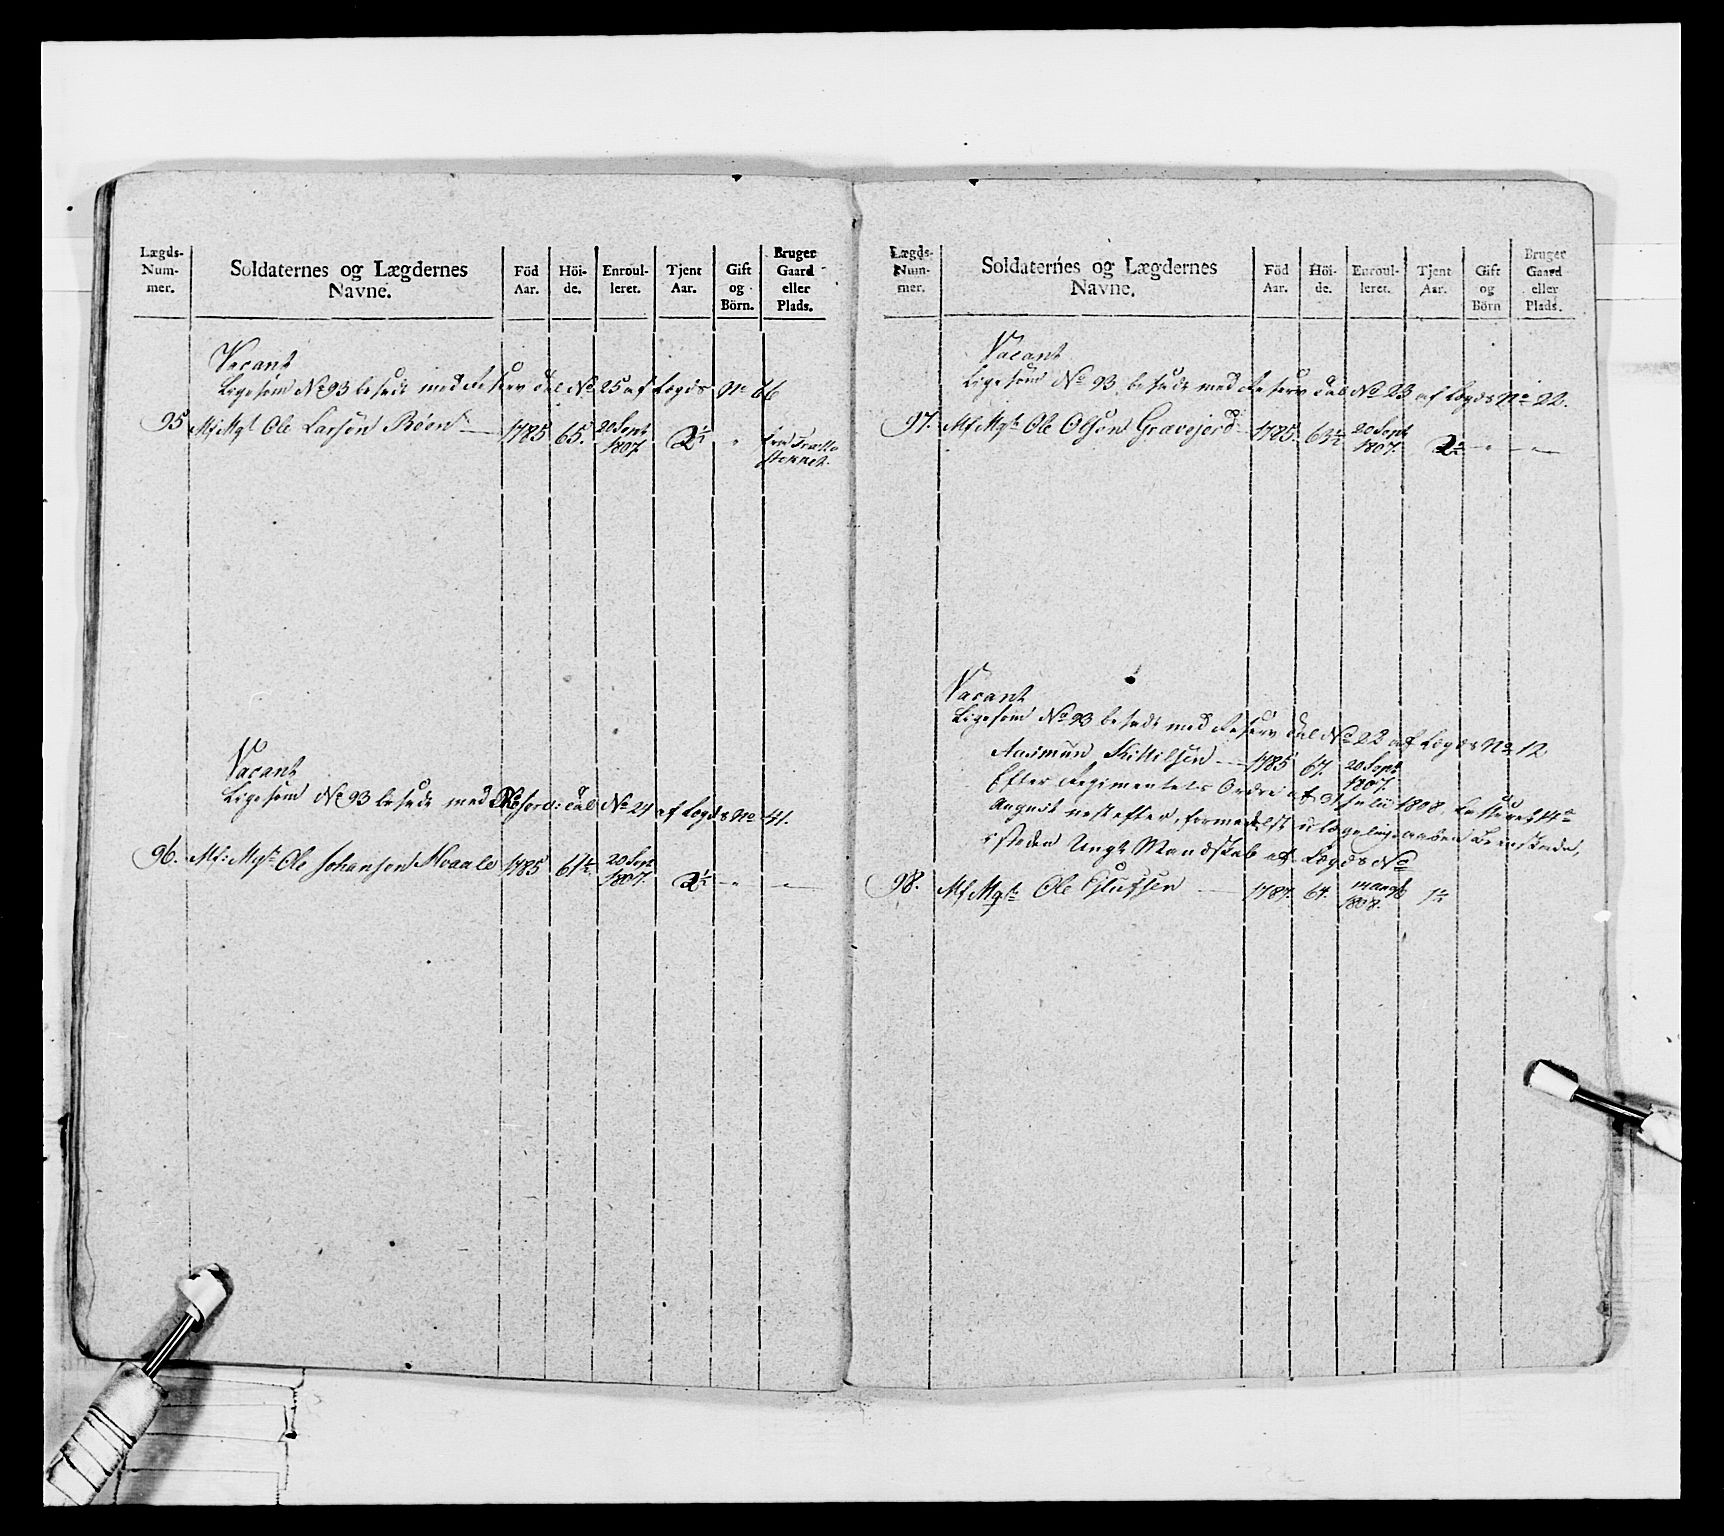 Lægds-
Num-
mer.
Soldaternes og Lægdernes
Navne.
Föd
Aar.
Höi-
de.
Enroul-
leret.
Tjent
Aar.
Gift
og
Börn.
Bruger
Gaard
eller
Plads.
Vacant
Ligesom No 93 besadt med Reserv Cal No 25 af Lægds No 66
95 Ole Larsön Röen 1785 65. 20 Sept 1807. 2½ "
Vacant
Ligesom No 93 besadt med No 21 af Lægds No 41.
96. Ole Johansen 1785 61½. 20 Sept 1807. 2½ " "
Lægds-
Num-
mer.
Soldaternes og Lægdernes
Navne.
Föd
Aar.
Höi-
de.
Enroul-
leret.
Tjent
Aar.
Gift
og
Börn
Bruger
Gaard
eller
Plads.
Vacant
Ligesom No 93 besadt med Reserv Cal No 23 af Lægds No 22.
97. Ole Olsön Gravejord 1785. 63½ 20 Sept 1807. 2½ " "
Vacant
Ligesom No 93 besadt med Reserv Cal No 22 af Lægds No 12
Aasmun Kittilsen 1785 67. 20 Sept 1807.
Efter Regimentets Ordre af Julii 1808
August nestefter, formedelst
Ungt Mandskab af Lægds No
98. Ole 1787. 64. 1808. 1½